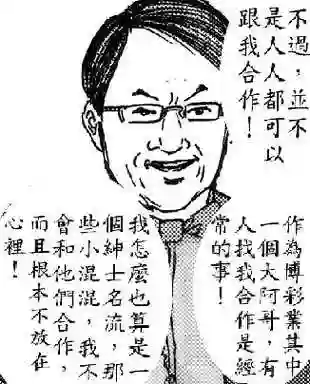 不過，並不
是人人都可以
跟我合作！
作為博彩業其中
一個大阿哥，有
人找我合作是經
常的事！
我怎麼也算是一
個紳士名流，那
些小混混，我不
會和他們合作，
而且根本不放在
心裡！